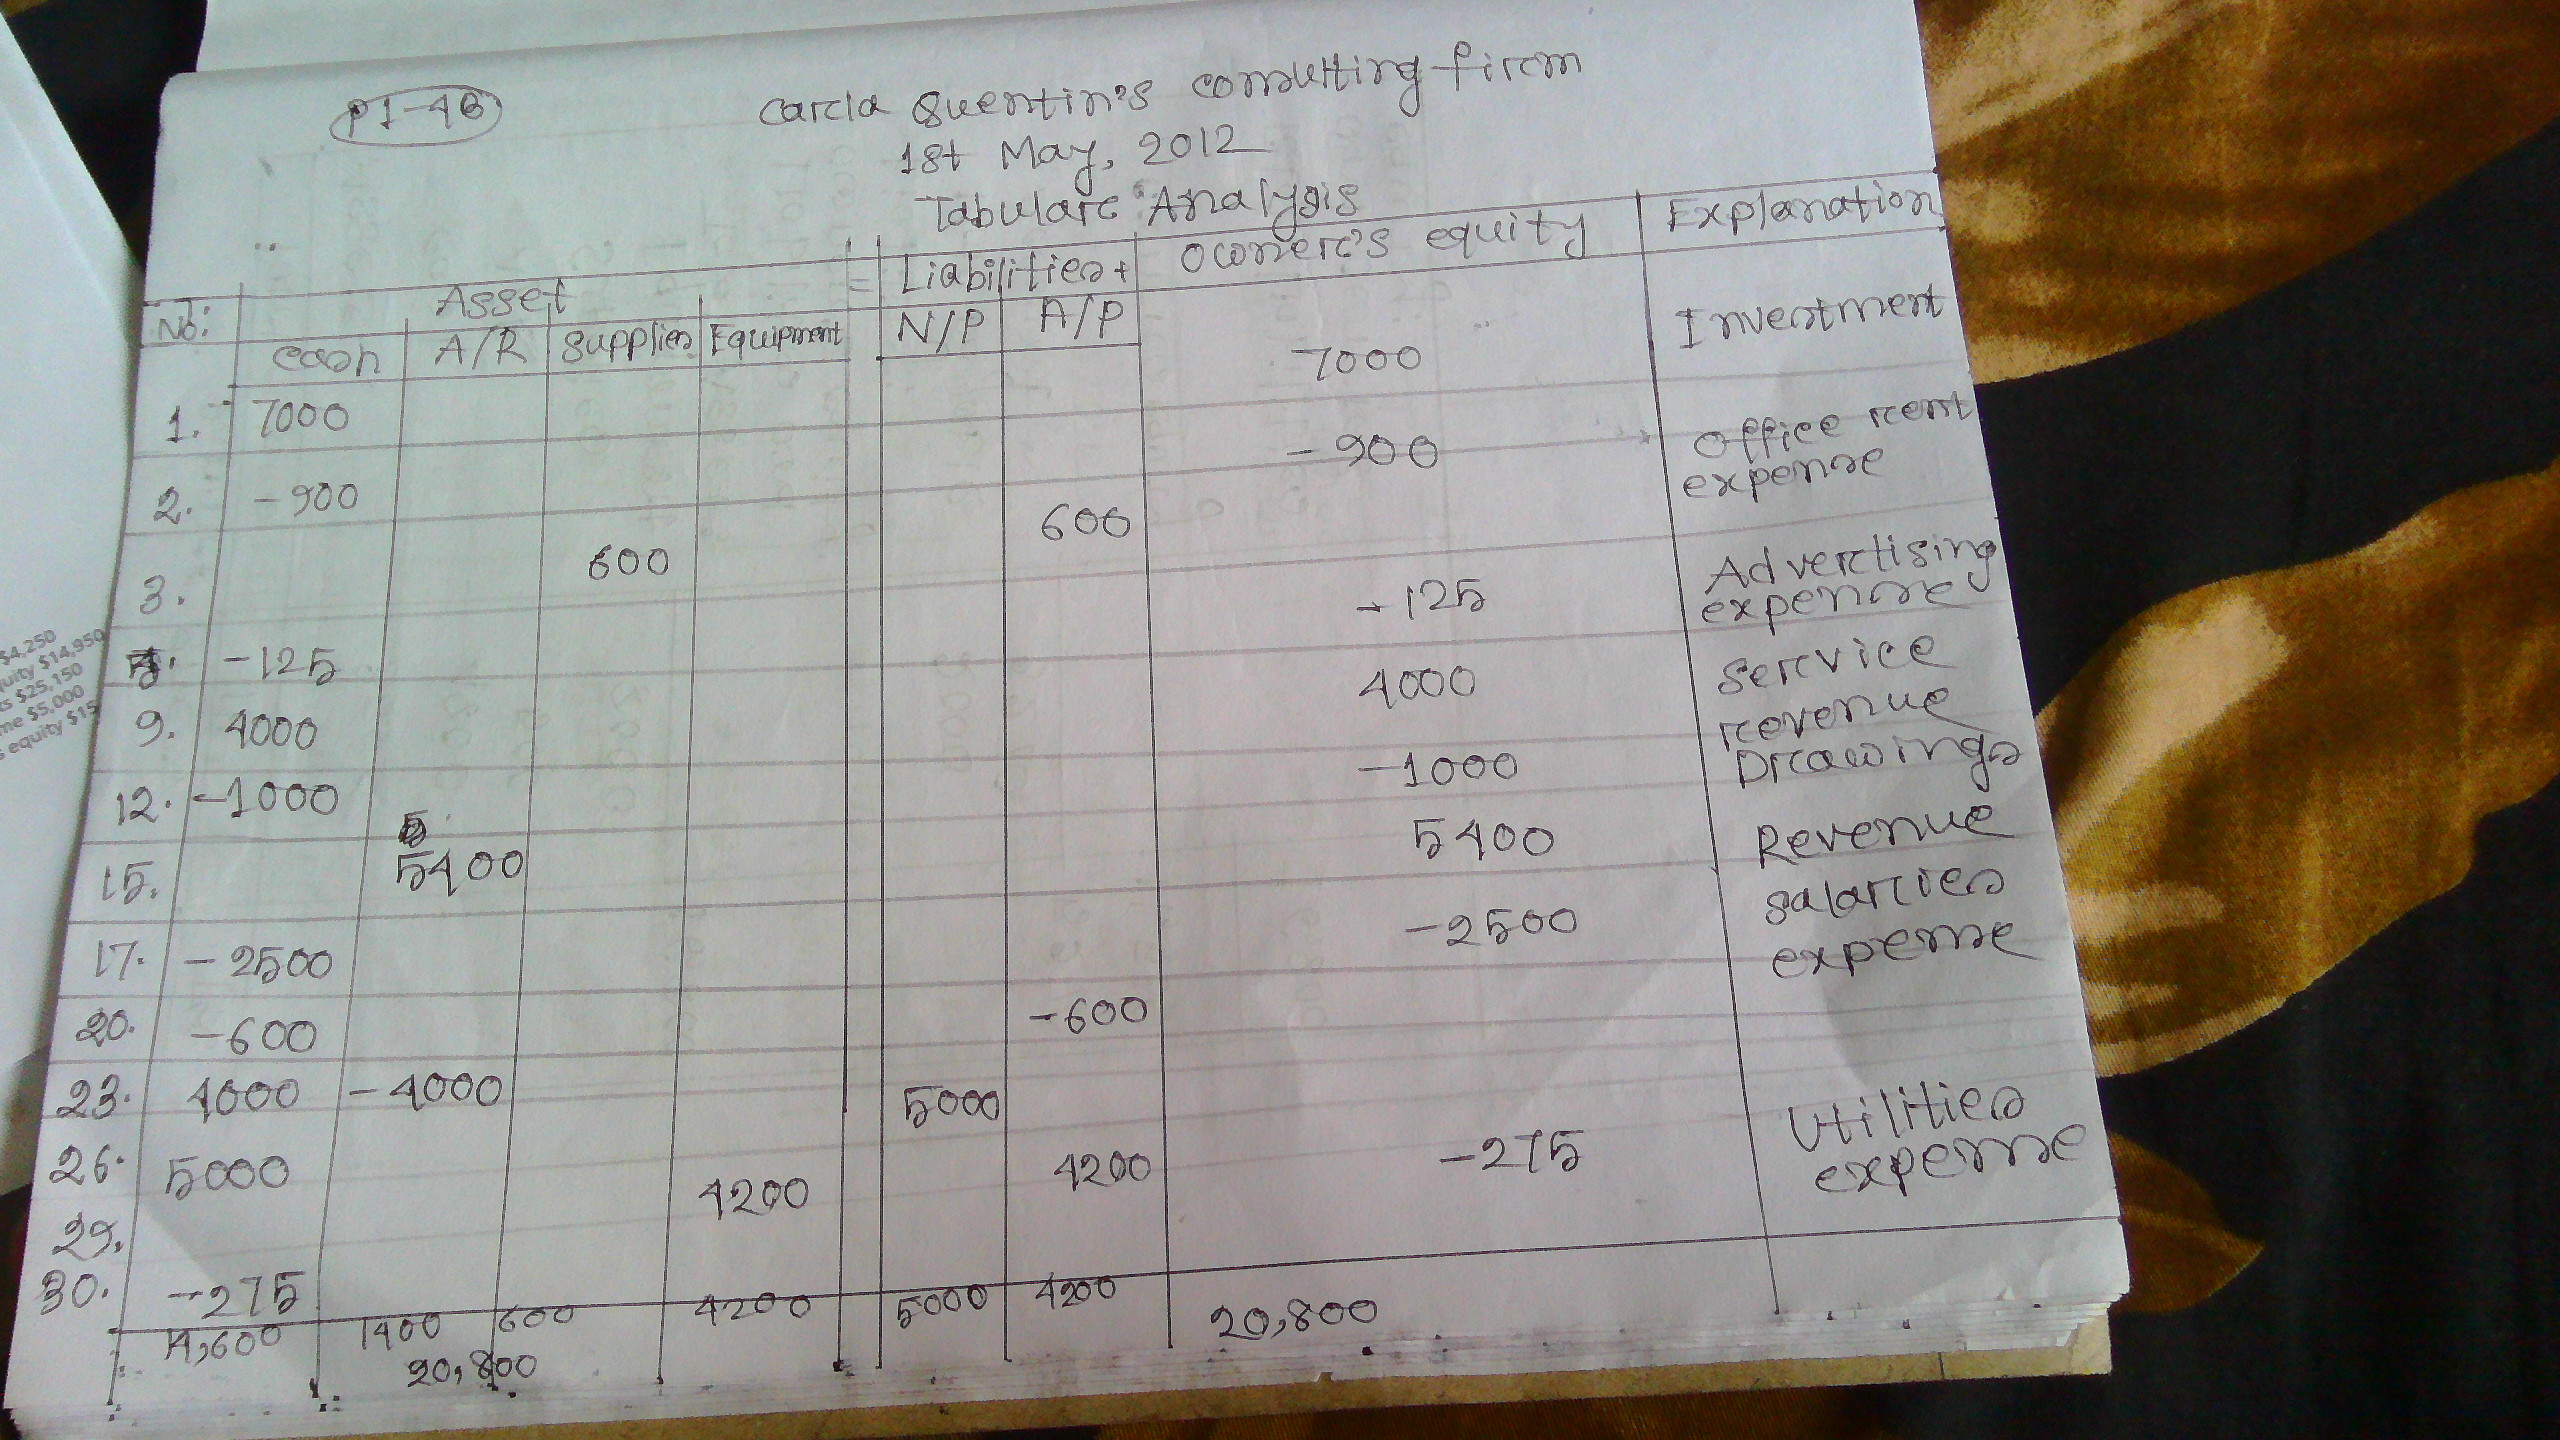 P1-4B
Carla Quentin's consulting firm
1st May, 2012
Tabular Analysis
No: Asset = Liabilities + Owner's equity Explanation
cash A/R Supplies Equipment N/P A/P
1. 7000 7000 Investment
2. -900 -900 office rent expense
3. 600 600
5. -125 -125 Advertising expense
9. 4000 4000 service revenue
12. -1000 -1000 Drawings
15. 5400 5400 Revenue
17. -2500 -2500 salaries expense
20. -600 -600
23. 4000 -4000
26. 5000 5000
29. 4200 4200
30. -275 -275 Utilities expense
14,600 1400 600 4200 5000 4200 20,800
20,800
$4,250
quity $14,950
ts $25,150
me $5,000
s equity $15